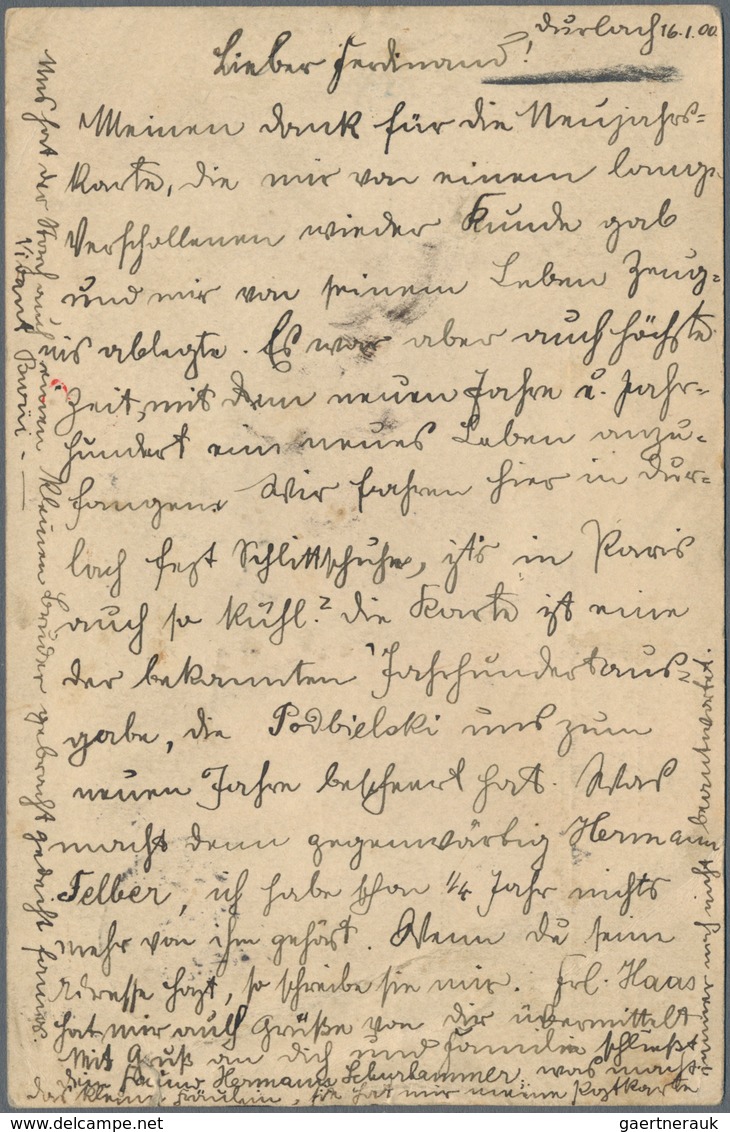 Durlach 16.1.00.
Lieber Ferdinand!
Meinen Dank für die Neujahrs=
karte, die mir von einem lang
Verschollenen wieder Kunde gab
und mir von seinem Leben Zeug-
nis ablegte. Es war aber auch höchste
Zeit, mit dem neuen Jahre u. Jahr-
hundert ein neues Leben anzu-
fangen. Wir fahren hier in Dur-
lach fest Schlittschuhe, ist's in Paris
auch so kühl? Die Karte ist eine
der bekannten Jahrhundertaus=
gabe, die Podbielski uns zum
neuen Jahre bescheert hat. Was
macht denn gegenwärtig Hermann
Felber, ich habe schon 1/4 Jahr nichts
mehr von ihm gehört. Wenn du seine
Adresse hast, so schreibe sie mir. Frl. Haas
hat mir auch Grüße von dir übermittelt
Mit Gruß an dich und Familie schließt
Hermann Schurhammer, was macht
das kleine Fräulein, sie hat mir meine Postkarte
immer noch nicht beantwortet.
Uns hat der Storch auch einen kleinen Bruder gebracht gedeiht famos.
gaertnerauk